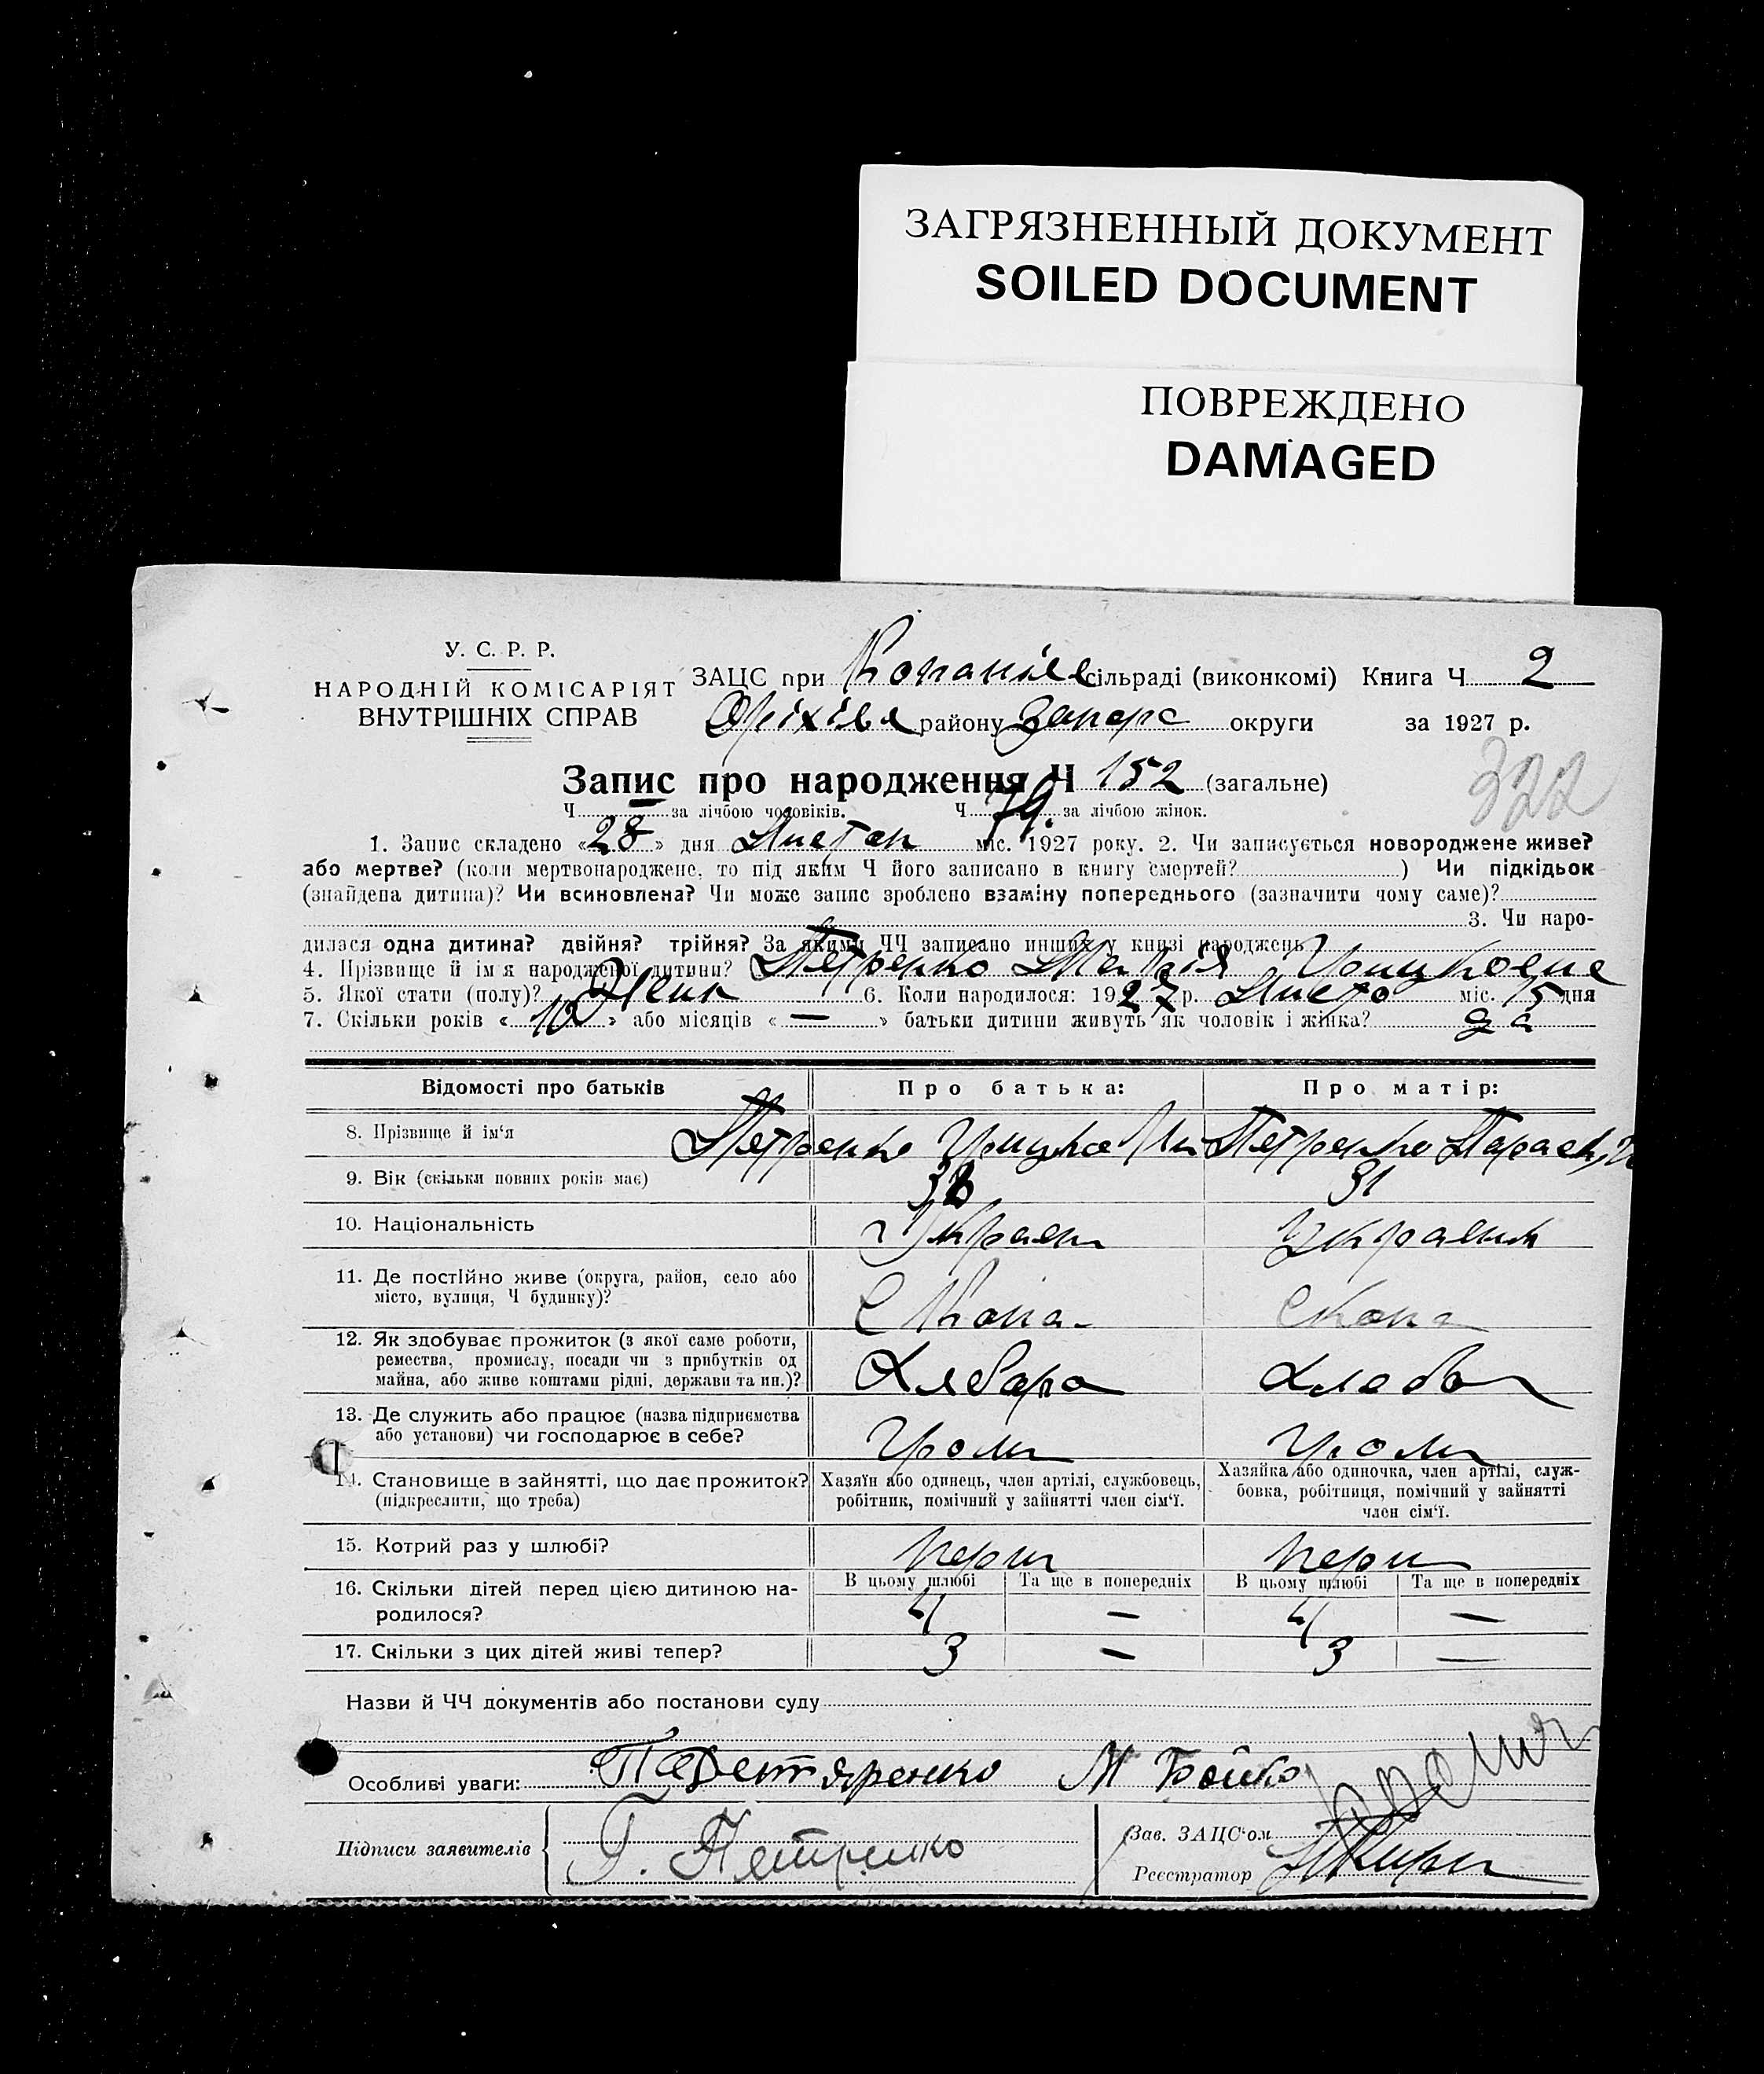 ЗАГРЯЗНЕННЫЙ ДОКУМЕНТ
SOILED DOCUMENT
ПОВРЕЖДЕНО
DAMAGED
У. С. Р. Р.
НАРОДНІЙ КОМІСАРІЯТ
ВНУТРІШНІХ СПРАВ
ЗАЦС при Копанів сільраді (виконкомі) Книга Ч 2
Оріхівя району Запорс округи за 1927 р.
322
Запис про народження Ч 152 (загальне)
Ч — за лічбою чоловіків. Ч 79. за лічбою жінок.
1. Запис складено «28» дня Листоп міс. 1927 року. 2. Чи записується новороджене живе?
або мертве? (коли мертвонароджене, то під яким Ч його записано в книгу смертей? ) Чи підкідьок
(знайдена дитина)? Чи всиновлена? Чи може запис зроблено взаміну попереднього (зазначити чому саме)?
3. Чи наро-
дилася одна дитина? двійня? трійня? За якими ЧЧ записано инших у книзі народжень
4. Прізвище й ім'я народженої дитини? Петренко Марія
5. Якої статі (полу)? Жен 6. Коли народилося: 1927 р. Листо міс. 15 дня
7. Скільки років «10» або місяців «—» батьки дитини живуть як чоловік і жінка? да
Відомості про батьків Про батька: Про матір:
8. Прізвище й ім'я Петренко Грицко Петренко Параск
9. Вік (скільки повних років має) 31
10. Національність Украен Украенк
11. Де постійно живе (округа, район, село або
місто, вулиця, Ч будинку)? С Копа- С Копа
12. Як здобуває прожиток (з якої саме роботи,
ремества, промислу, посади чи з прибутків од
майна, або живе коштами рідні, держави та ин.)? Хлебаро Хлебо
13. Де служить або працює (назва підприємства
або установи) чи господарює в себе?
14. Становище в зайнятті, що дає прожиток?
(підкреслити, що треба)
Хазяїн або одинець, член артілі, службовець,
робітник, помічний у зайнятті член сім'ї.
Хазяйка або одиночка, член артілі, служ-
бовка, робітниця, помічний у зайнятті
член сім'ї.
15. Котрий раз у шлюбі? перш перш
16. Скільки дітей перед цією дитиною на-
родилося?
В цьому шлюбі Та ще в попередніх В цьому шлюбі Та ще в попередніх
4 — 4 —
17. Скільки з цих дітей живі тепер? 3 — 3 —
Назви й ЧЧ документів або постанови суду
Особливі уваги: М Бойко
Підписи заявителів Г. Петренко
Зав. ЗАЦС'ом
Реєстратор